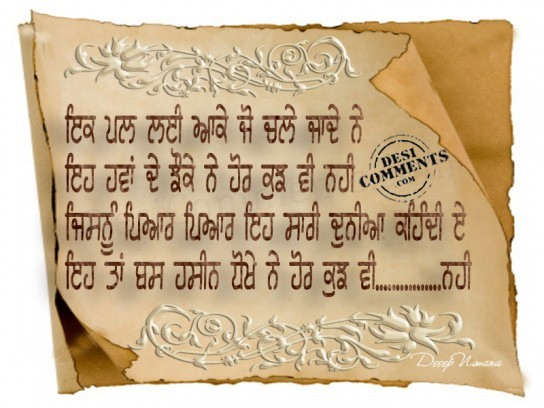 ਇਕ ਪਲ ਲਈ ਆਕੇ ਜੋ ਚਲੇ ਜਾਂਦੇ ਨੇ
ਇਹ ਹਵਾਂ ਦੇ ਝੌਕੇ ਨੇ ਹੋਰ ਕੁਝ ਵੀ ਨਹੀ
DESI
COMMENTS
.COM
ਜਿਸਨੂੰ ਪਿਆਰ ਪਿਆਰ ਇਹ ਸਾਰੀ ਦੁਨੀਆ ਕਹਿੰਦੀ ਏ
ਇਹ ਤਾਂ ਬਸ ਹਸੀਨ ਧੋਖੇ ਨੇ ਹੋਰ ਕੁਝ ਵੀ................ਨਹੀ